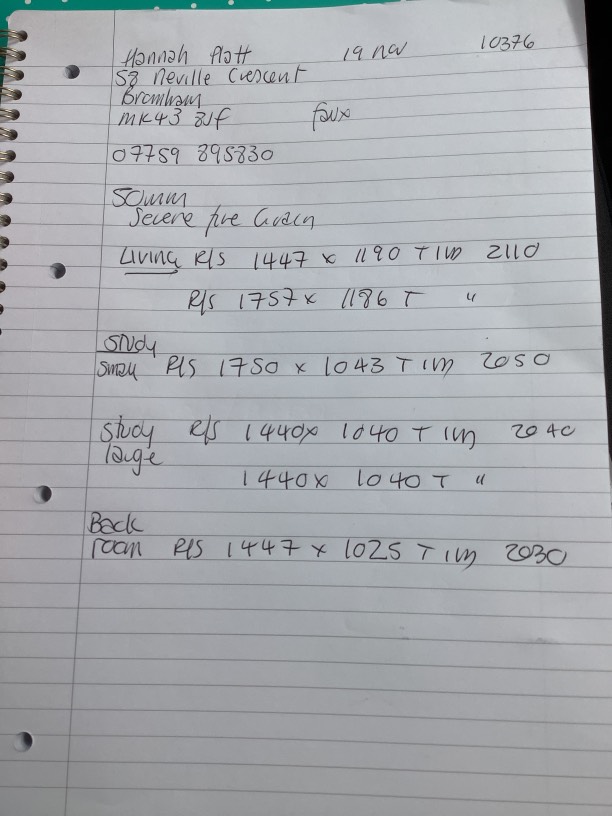 Hannah Platt 19 nov 10376
53 Neville Crescent
Bromham
MK43 8JF faux
07759 895830
50mm
Severe fire Grain
Living R/S 1447 x 1190 T 1m 2110
R/S 1757 x 1186 T "
Study
small R/S 1750 x 1043 T 1m 2050
Study R/S 1440 x 1040 T 1m 2040
large
1440 x 1040 T "
Back
room R/S 1447 x 1025 T 1m 2030